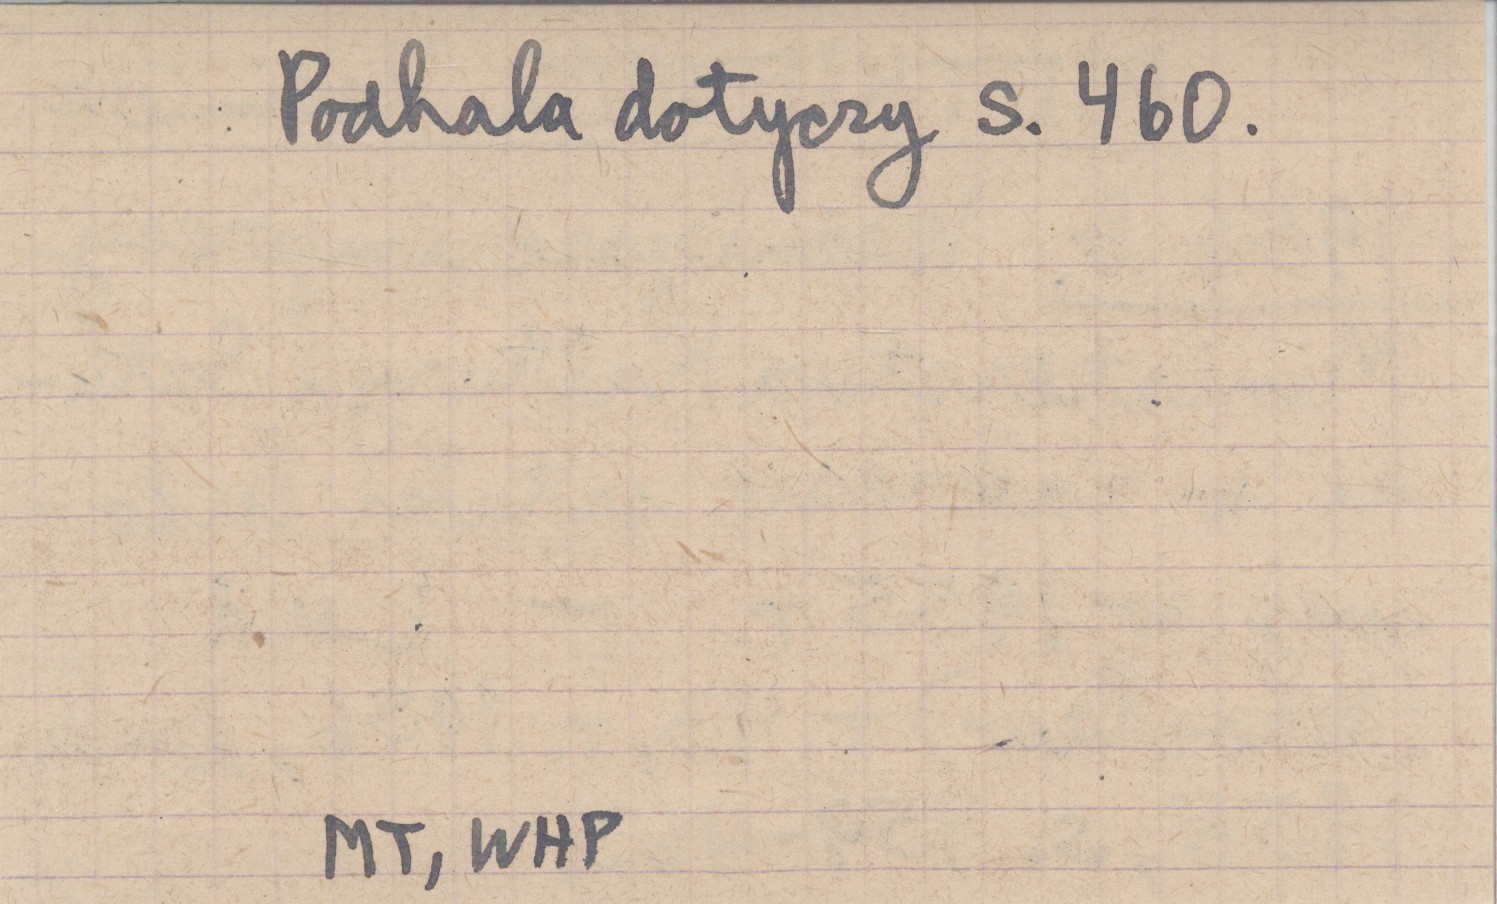 Podhala dotyczy s. 460.
MT, WHP